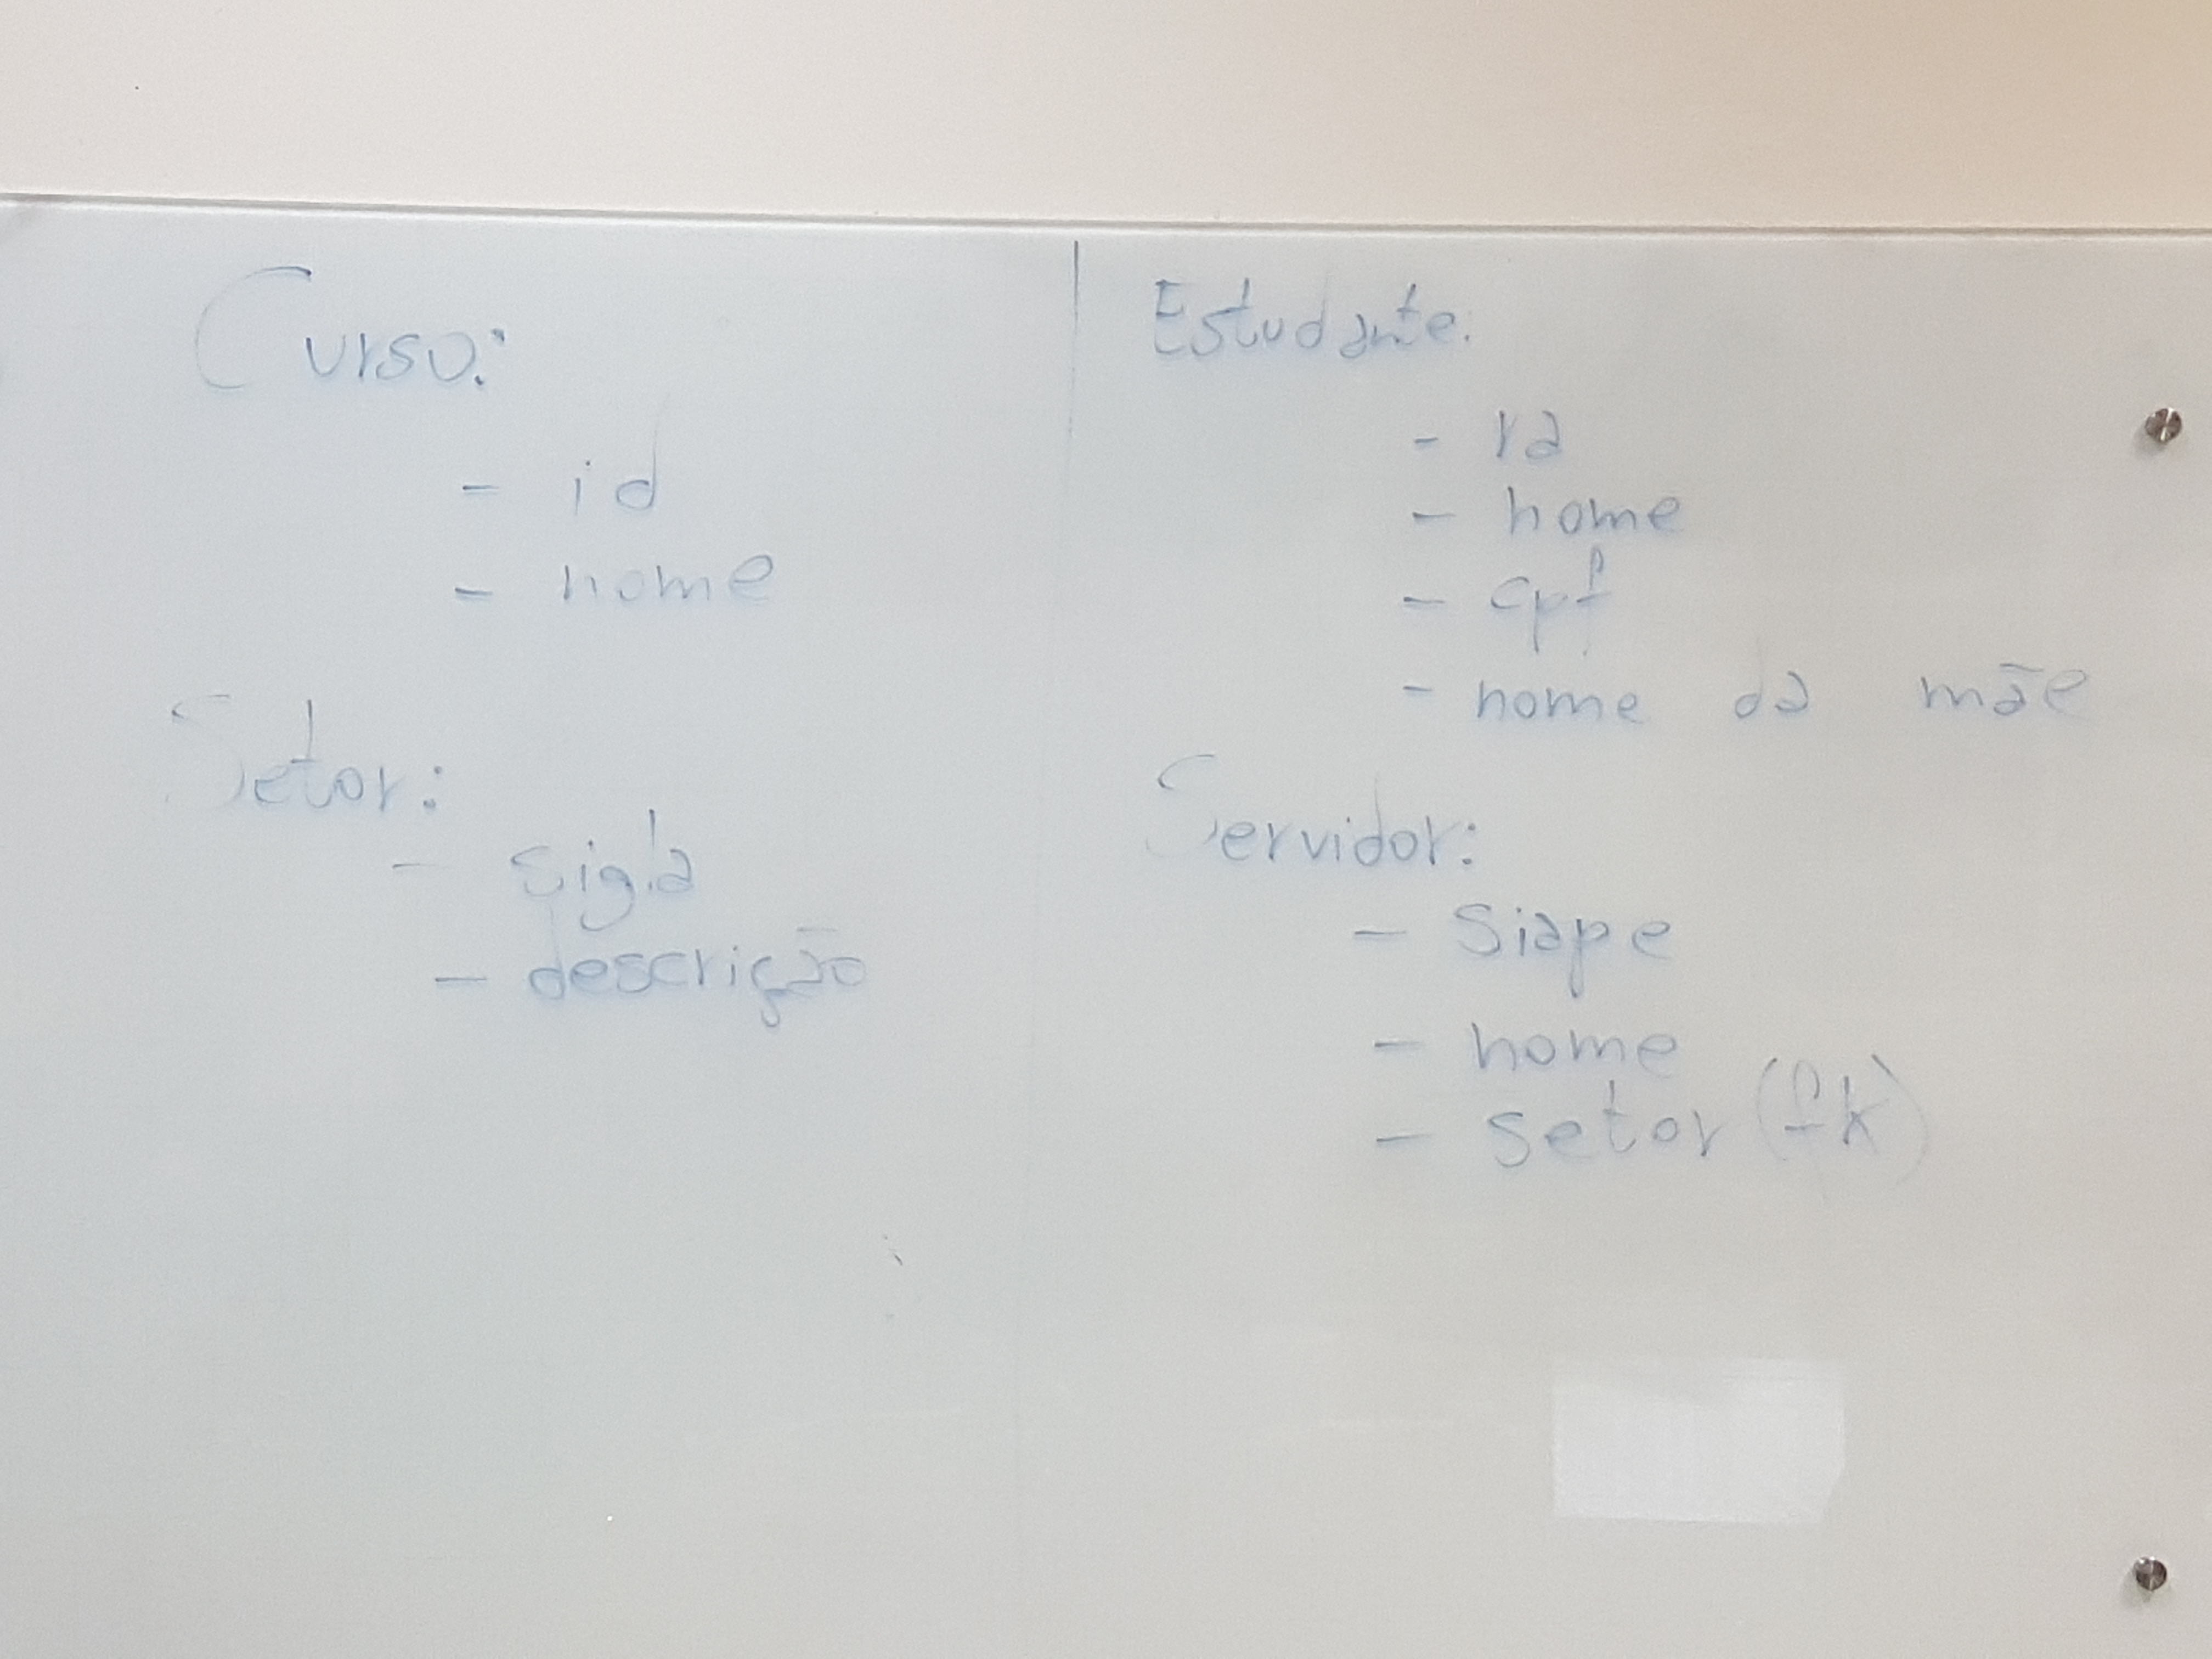 Curso:
- id
- nome
Setor:
- sigla
- descrição
Estudante:
- ra
- nome
- cpf
- nome da mãe
Servidor:
- Siape
- nome
- setor (fk)